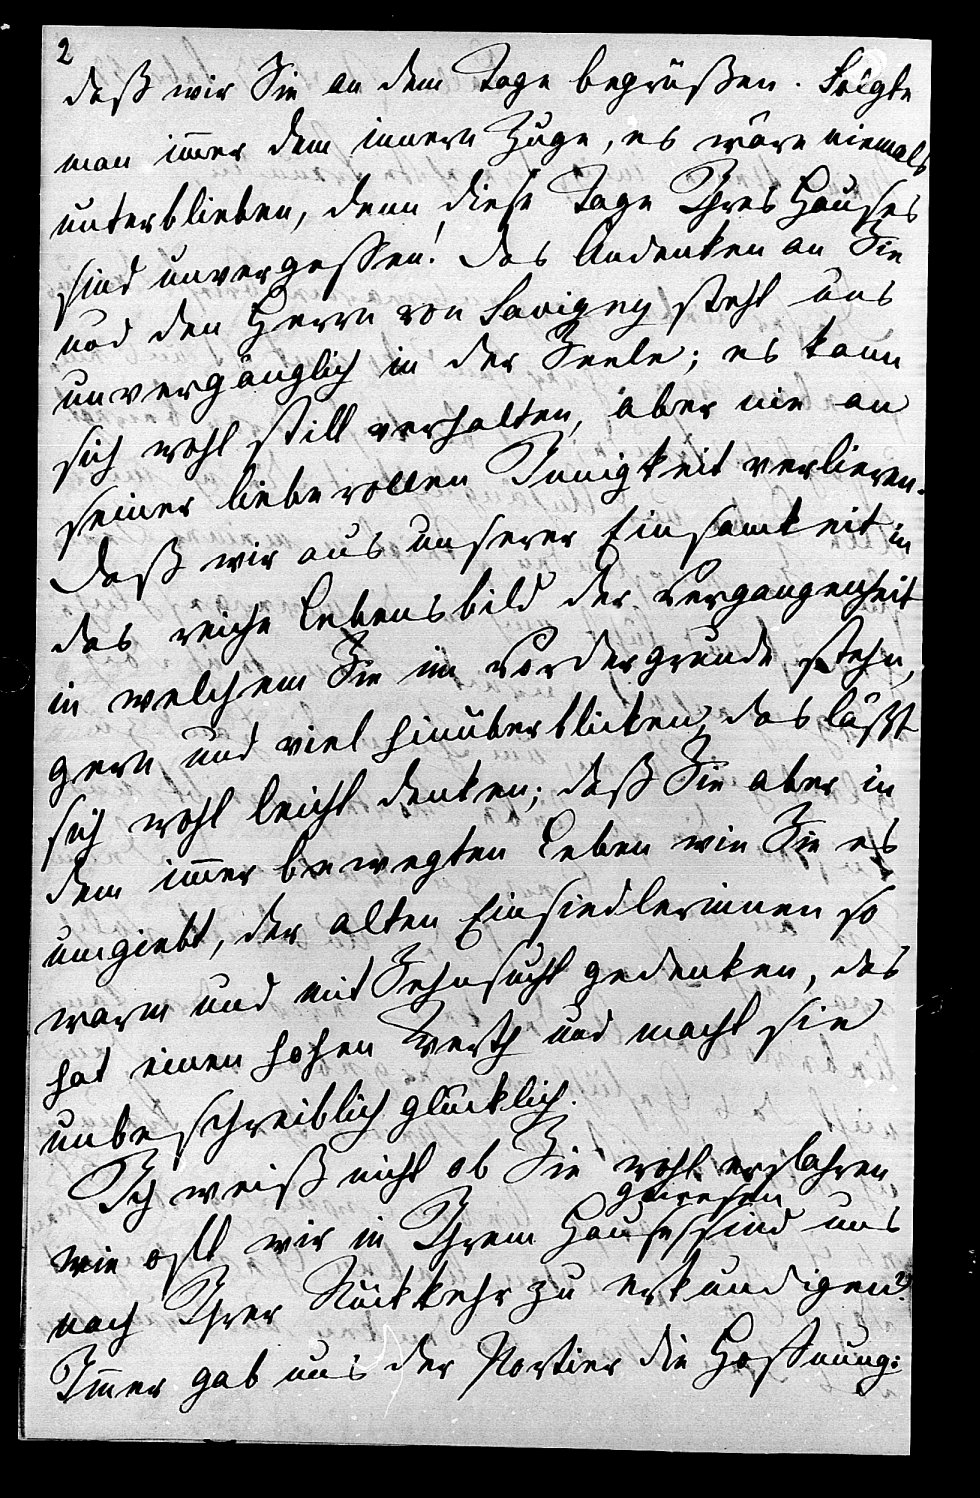 2
daß wir Sie an dem Tage begrüßen. Folgte
man im̄er dem innern Zuge, es wäre niemals
unterblieben, denn diese Tage Ihres Hauses
sind unvergessen! Das Andenken an Sie
und den Herrn von Savigny steht uns
unvergänglich in der Seele; es kann
sich wohl still verhalten, aber nie an
seiner liebevollen Innigkeit verlieren.
Daß wir aus unserer Einsamkeit in
das reiche Lebensbild der Vergangenheit
in welchem Sie im Vordergrunde stehn,
gern und viel hinüberblicken, das läßt
sich wohl leicht denken; daß Sie aber in
dem im̄er bewegten Leben wie Sie es
umgiebt, der alten Einsiedlerinnen so
warm und mit Sehnsucht gedenken, das
hat einen hohen Werth und macht sie
unbeschreiblich glücklich.
Ich weiß nicht ob Sie wohl erfahren
gewesen
wie oft wir in Ihrem Hause sind uns
nach Ihrer Rückkehr zu erkundigen?
Im̄er gab uns der Portier die Hoffnung: